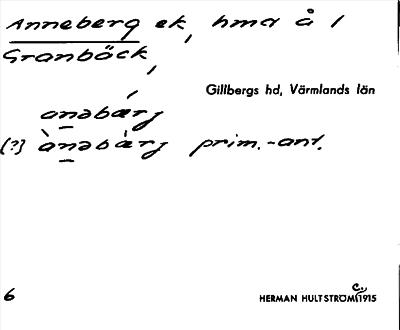 Anneberg ek, hma å 1
Granbäck,
Gillbergs hd, Värmlands län
anəbǽrj
(?) ànəbæ̀rj prim.-ant.
6
HERMAN HULTSTRÖM C. 1915